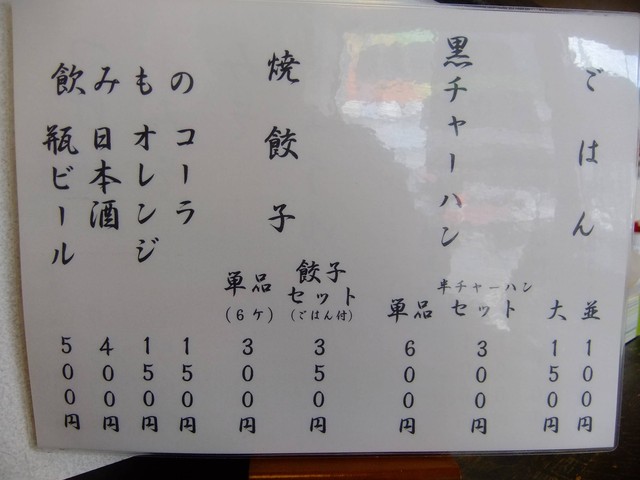 ごはん
並 100円
大 150円
黒チャーハン
半チャーハンセット 300円
単品 600円
焼餃子
餃子セット(ごはん付) 350円
単品(6ケ) 300円
飲みもの
コーラ 150円
オレンジ 150円
日本酒 400円
瓶ビール 500円